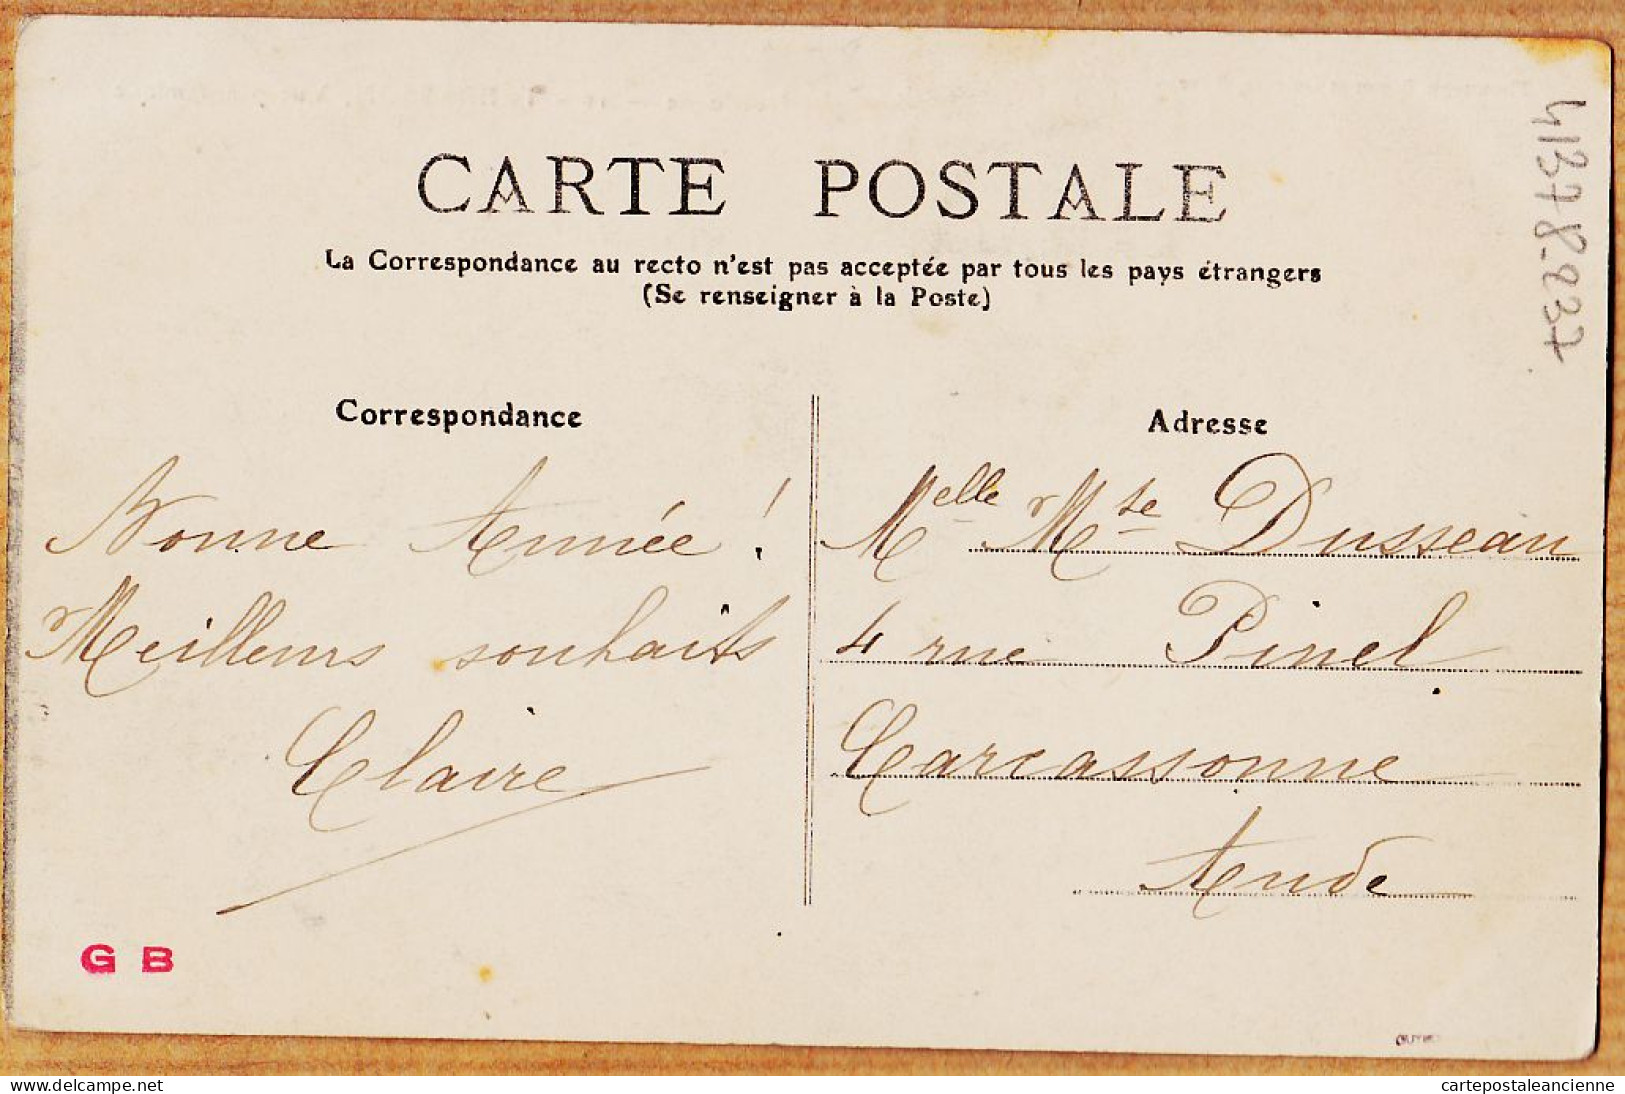 CARTE POSTALE
La Correspondance au recto n'est pas acceptée par tous les pays étrangers
(Se renseigner à la Poste)
41378.237
Correspondance
Bonne Année !
Meilleurs souhaits
Claire
G B
Adresse
Melle Mse Dusseau
4 rue Pinel
Carcassonne
Aude
delcampe.net
cartepostaleancienne